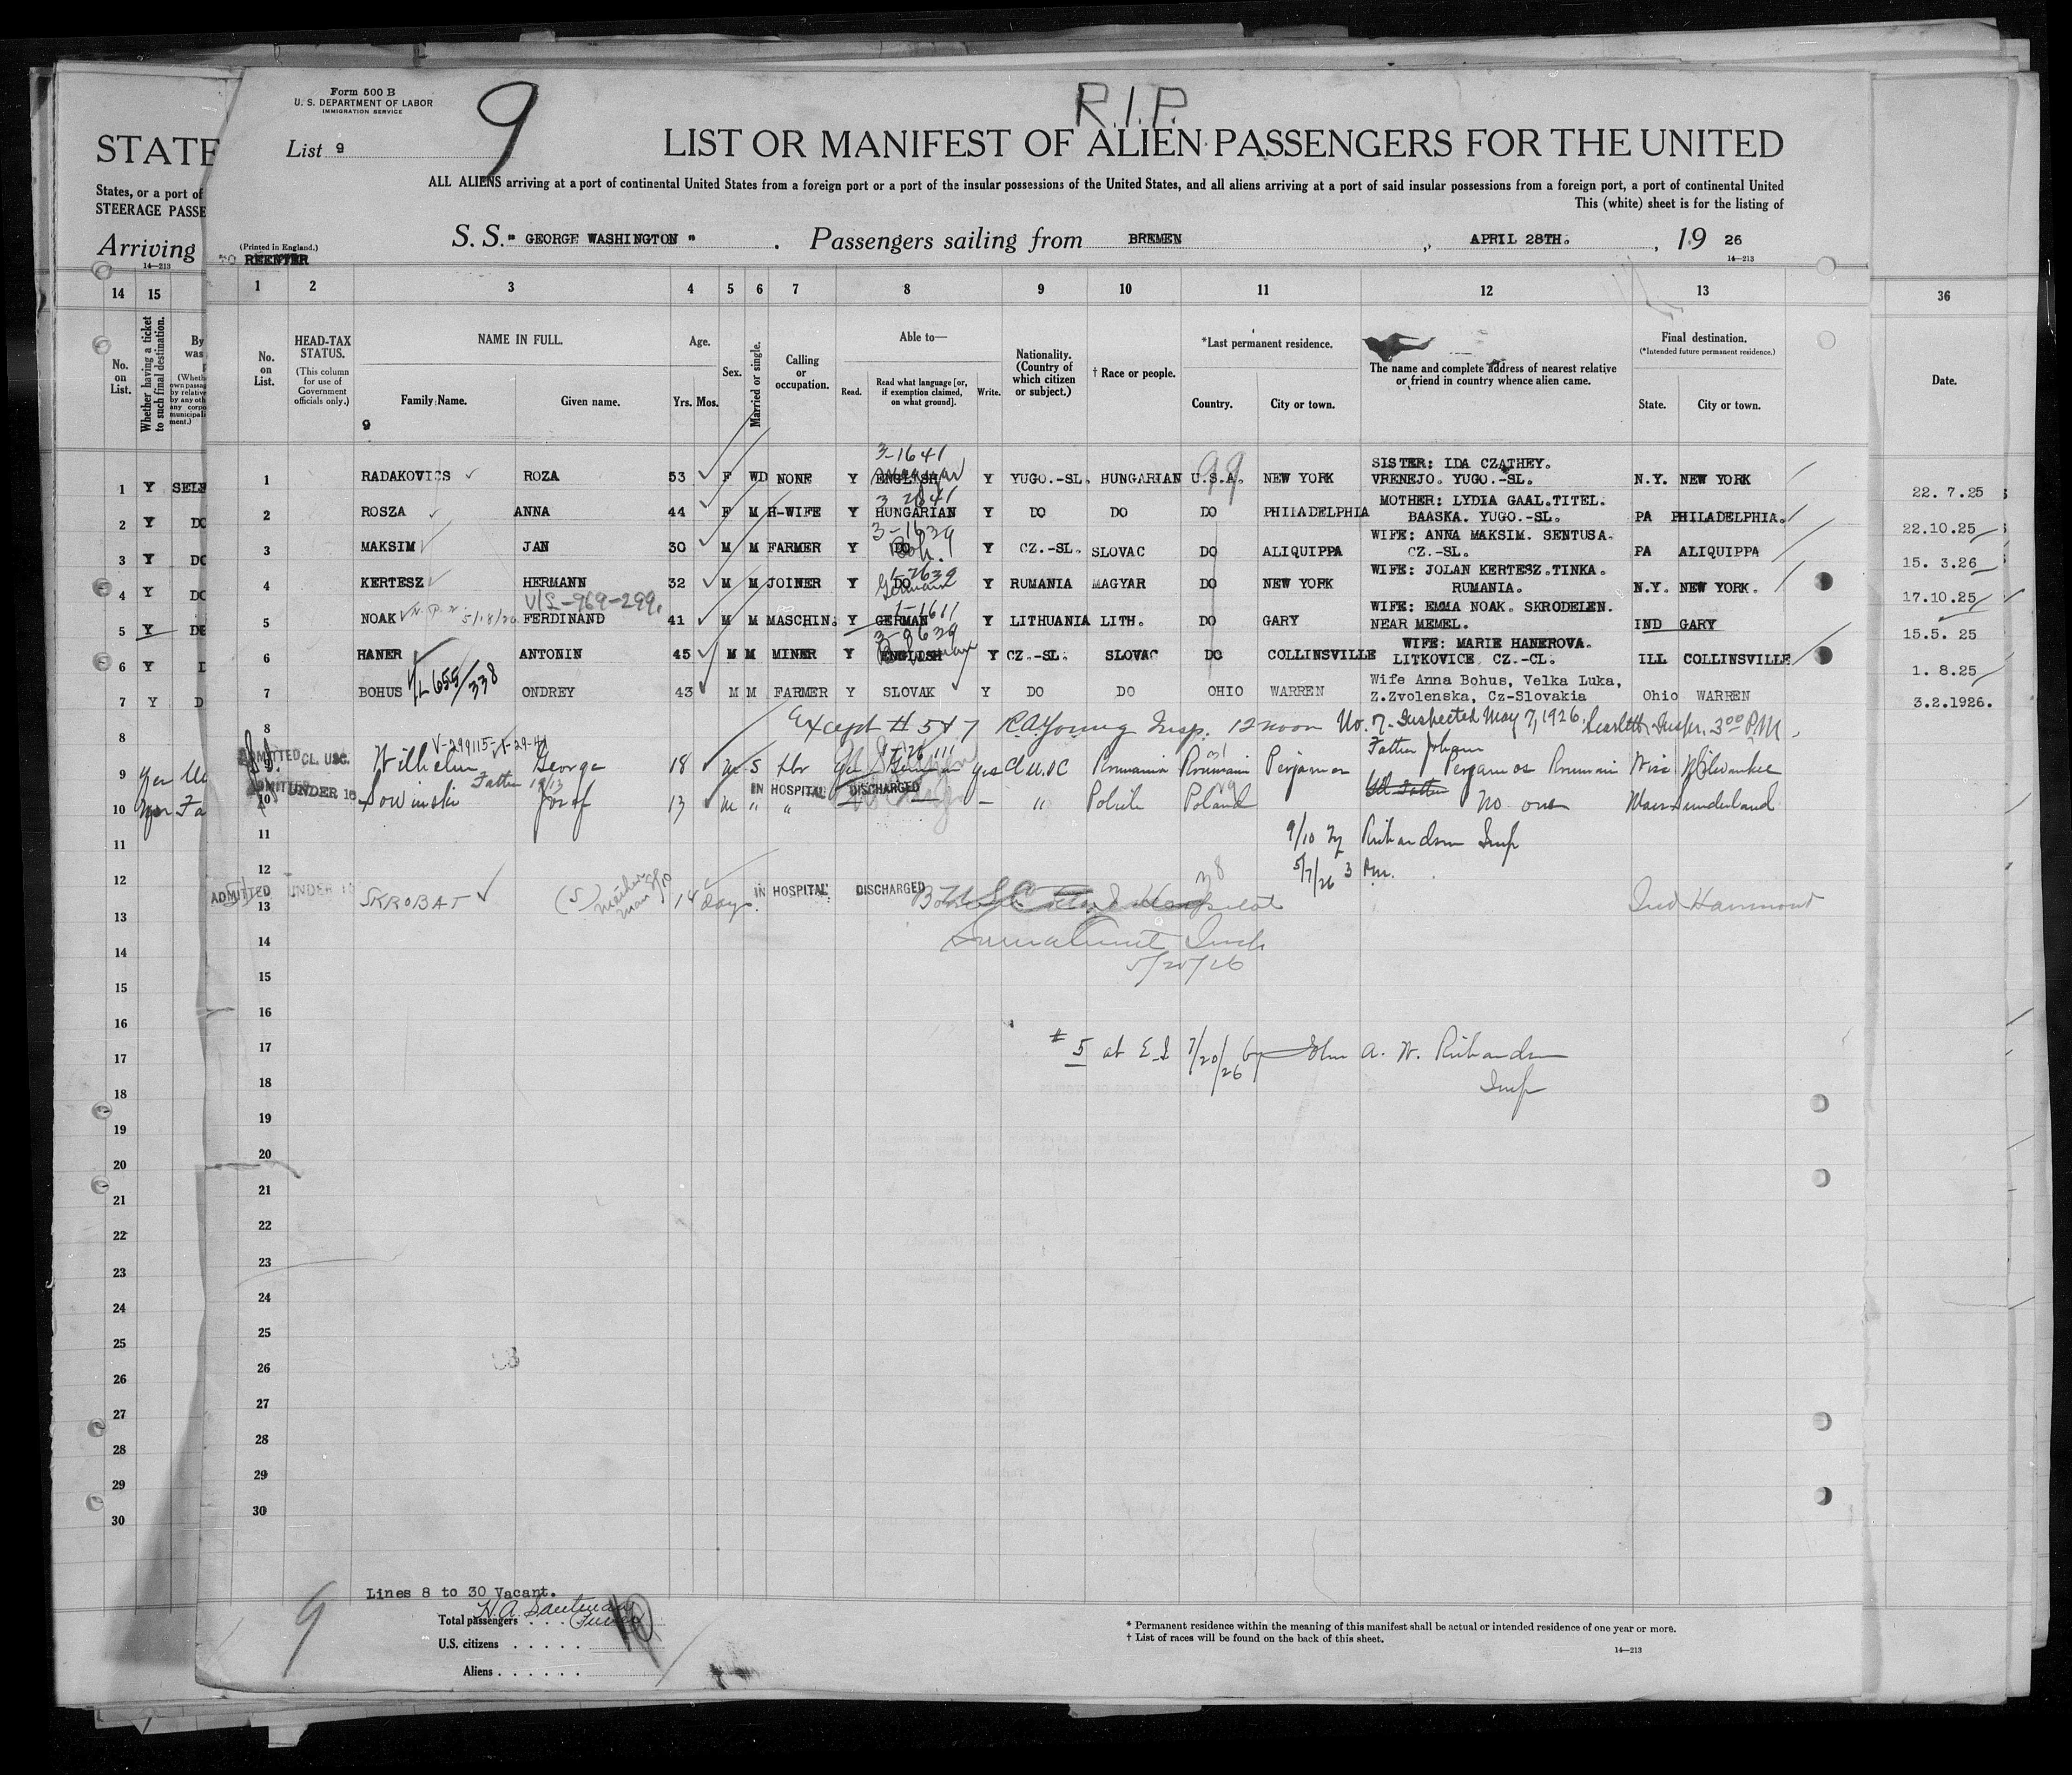 Form 500 B
U. S. DEPARTMENT OF LABOR
IMMIGRATION SERVICE
9
R.I.P.
List 9
STATE
LIST OR MANIFEST OF ALIEN PASSENGERS FOR THE UNITED
States, or a port of
STEERAGE PASSE
ALL ALIENS arriving at a port of continental United States from a foreign port or a port of the insular possessions of the United States, and all aliens arriving at a port of said insular possessions from a foreign port, a port of continental United
This (white) sheet is for the listing of
Arriving
14—213
(Printed in England.)
TO REENTER
S. S. " GEORGE WASHINGTON " . Passengers sailing from BREMEN , APRIL 28TH. , 19 26
14—213
14 15 1 2 3 4 5 6 7 8 9 10 11 12 13 36
No. on List.
Whether having a ticket to such final destination.
By was
No. on List.
HEAD-TAX STATUS.
(This column for use of Government officials only.)
NAME IN FULL.
Family Name.
Given name.
9
Age.
Yrs. Mos.
Sex.
Married or single.
Calling or occupation.
Able to—
Read.
Read what language [or, if exemption claimed, on what ground].
Write.
Nationality. (Country of which citizen or subject.)
† Race or people.
*Last permanent residence.
Country.
City or town.
The name and complete address of nearest relative or friend in country whence alien came.
Final destination.
(*Intended future permanent residence.)
State.
City or town.
Date.
3-1641
1 Y SELF 1 RADAKOVICS ROZA 53 F WD NONE Y ENGLISH Magyar Y YUGO.-SL. HUNGARIAN U.S.A. 99 NEW YORK SISTER: IDA CZATHEY. VRENEJO. YUGO.-SL. N.Y. NEW YORK 22. 7.25
2 Y DO 2 ROSZA ANNA 44 F M H-WIFE Y HUNGARIAN Y DO DO DO PHILADELPHIA MOTHER: LYDIA GAAL.TITEL. BAASKA. YUGO.-SL. PA PHILADELPHIA. 22.10.25
3-1639
3 Y DO 3 MAKSIM JAN 30 M M FARMER Y DO Boh. Y CZ.-SL. SLOVAC DO ALIQUIPPA WIFE: ANNA MAKSIM. SENTUSA. CZ.-SL. PA ALIQUIPPA 15. 3.26
4 Y DO 4 KERTESZ HERMANN 32 M M JOINER Y DO German Y RUMANIA MAGYAR DO NEW YORK WIFE: JOLAN KERTESZ.TINKA. RUMANIA. N.Y. NEW YORK. 17.10.25
V/L-969-299.
1-1611
5 Y DO 5 NOAK 5/18/26 FERDINAND 41 M M MASCHIN. Y GERMAN Y LITHUANIA LITH. DO GARY WIFE: EMMA NOAK. SKRODELEN. NEAR MEMEL. IND GARY 15.5. 25
6 Y D 6 HANER ANTONIN 45 M M MINER Y ENGLISH Y CZ.-SL. SLOVAC DO COLLINSVILLE WIFE: MARIE HANEROVA. LITKOVICE CZ.-CL. ILL COLLINSVILLE 1. 8.25
7 Y D 7 BOHUS V/L 655/338 ONDREY 43 M M FARMER Y SLOVAK Y DO DO OHIO WARREN Wife Anna Bohus, Velka Luka, Z.Zvolenska, Cz-Slovakia Ohio WARREN 3.2.1926.
8 8 Except # 5 & 7 R.A. Young Insp. 12 noon No. 7. Inspected May 7, 1926, Insp. 3 00 P.M.
ADMITTED CL. USC.
9 9 Wilhelm George 18 M S Lbr yes German yes Rumania Perjamos Father Johann Perjamos Rumania Wisc Milwaukee
ADMITTED UNDER 16
IN HOSPITAL DISCHARGED
10 10 Sowinski Father Josef 13 M " " — " Polish Poland No one Mass Sunderland
11 11 9/10 by Richardson Insp
12 12 5/7/26 3 P.m.
ADMITTED UNDER 16 IN HOSPITAL DISCHARGED
13 13 SKROBAT (S) 14 days Ind Hammond
14 14
5/20/26
15 15
16 16
17 17 # 5 at E.I. 7/20/26 by John A. W. Richardson
18 18 Insp
19 19
20 20
21 21
22 22
23 23
24 24
25 25
26 26
27 27
28 28
29 29
30 30
Lines 8 to 30 Vacant.
9
Total passengers . . . 10
U.S. citizens . . . . .
Aliens . . . . . .
* Permanent residence within the meaning of this manifest shall be actual or intended residence of one year or more.
† List of races will be found on the back of this sheet.
14—213